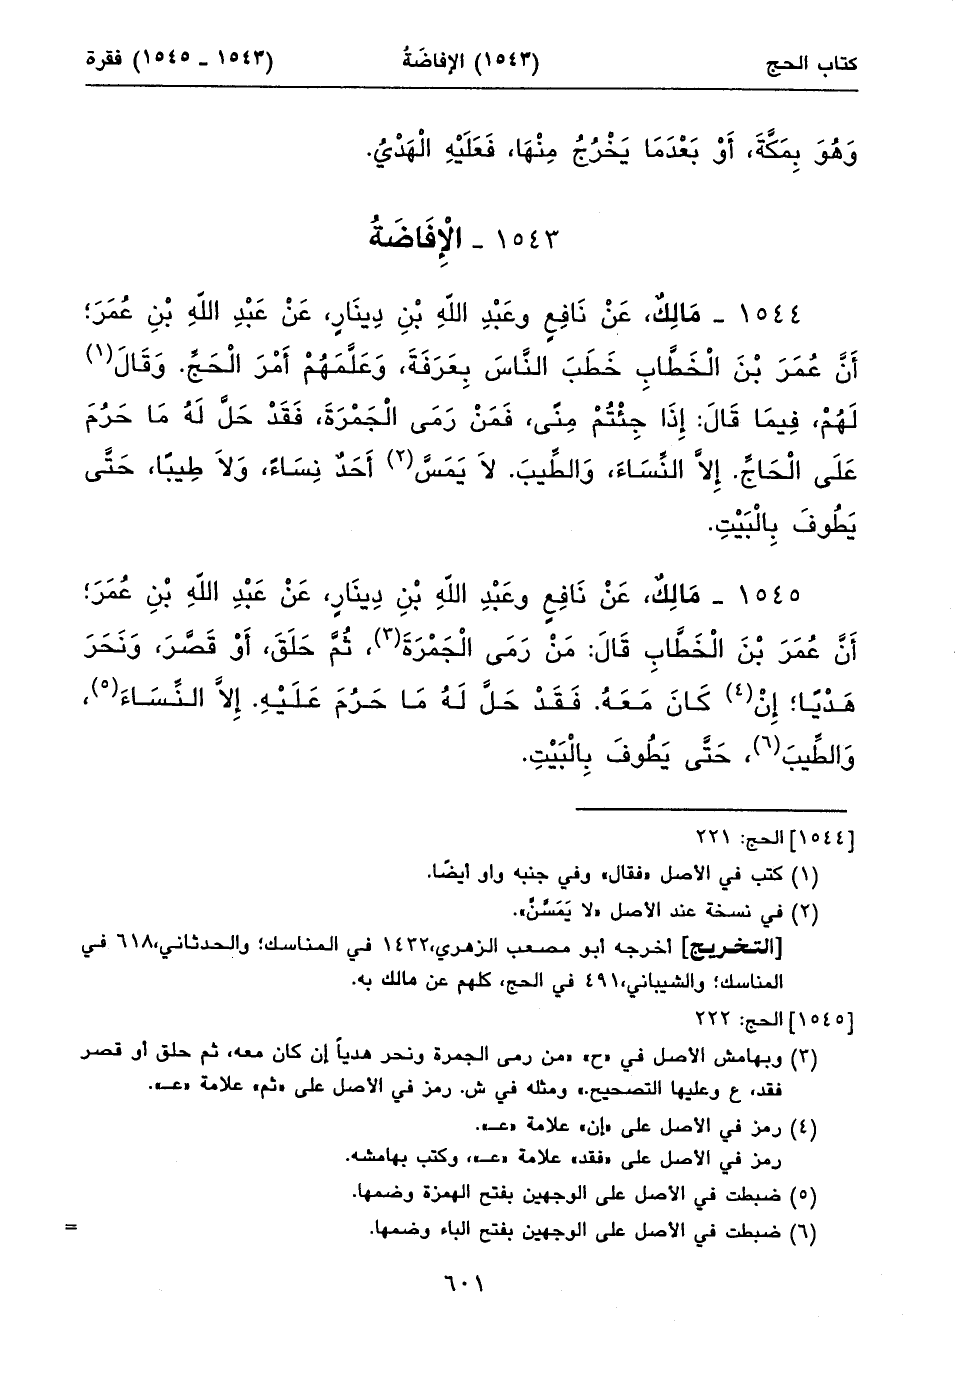 كتاب الحج (١٥٤٣) الإفاضَةُ (١٥٤٣ ـ ١٥٤٥) فقرة
وَهُوَ بِمَكَّةَ، أَوْ بَعْدَمَا يَخْرُجُ مِنْهَا، فَعَلَيْهِ الْهَدْيُ.
١٥٤٣ ـ الْإِفَاضَةُ
١٥٤٤ ـ مَالِكٌ، عَنْ نَافِعٍ وعَبْدِ اللهِ بْنِ دِينَارٍ، عَنْ عَبْدِ اللهِ بْنِ عُمَرَ؛
أَنَّ عُمَرَ بْنَ الْخَطَّابِ خَطَبَ النَّاسَ بِعَرَفَةَ، وَعَلَّمَهُمْ أَمْرَ الْحَجِّ. وَقَالَ(١)
لَهُمْ، فِيمَا قَالَ: إِذَا جِئْتُمْ مِنًى، فَمَنْ رَمَى الْجَمْرَةَ، فَقَدْ حَلَّ لَهُ مَا حَرُمَ
عَلَى الْحَاجِّ. إِلاَّ النِّسَاءَ، وَالطِّيبَ. لاَ يَمَسَّ(٢) أَحَدٌ نِسَاءً، وَلاَ طِيبًا، حَتَّى
يَطُوفَ بِالْبَيْتِ.
١٥٤٥ ـ مَالِكٌ، عَنْ نَافِعٍ وعَبْدِ اللهِ بْنِ دِينَارٍ، عَنْ عَبْدِ اللهِ بْنِ عُمَرَ؛
أَنَّ عُمَرَ بْنَ الْخَطَّابِ قَالَ: مَنْ رَمَى الْجَمْرَةَ(٣)، ثُمَّ حَلَقَ، أَوْ قَصَّرَ، وَنَحَرَ
هَدْيًا؛ إِنْ(٤) كَانَ مَعَهُ. فَقَدْ حَلَّ لَهُ مَا حَرُمَ عَلَيْهِ. إِلاَّ النِّسَاءَ(٥)،
وَالطِّيبَ(٦)، حَتَّى يَطُوفَ بِالْبَيْتِ.
[١٥٤٤] الحج: ٢٢١
(١) كتب في الأصل «فقال» وفي جنبه واو أيضًا.
(٢) في نسخة عند الأصل «لا يَمَسَّنَّ».
[التخريج] أخرجه أبو مصعب الزهري،١٤٣٢ في المناسك؛ والحدثاني،٦١٨ في
المناسك؛ والشيباني،٤٩١ في الحج، كلهم عن مالك به.
[١٥٤٥] الحج: ٢٢٢
(٣) وبهامش الأصل في «ح» «من رمى الجمرة ونحر هدياً إن كان معه، ثم حلق أو قصر
فقد، ع وعليها التصحيح.» ومثله في ش. رمز في الأصل على «ثم» علامة «عـ».
(٤) رمز في الأصل على «إن» علامة «عـ».
رمز في الأصل على «فقد» علامة «عـ»، وكتب بهامشه.
(٥) ضبطت في الأصل على الوجهين بفتح الهمزة وضمها.
(٦) ضبطت في الأصل على الوجهين بفتح الباء وضمها. =
٦٠١